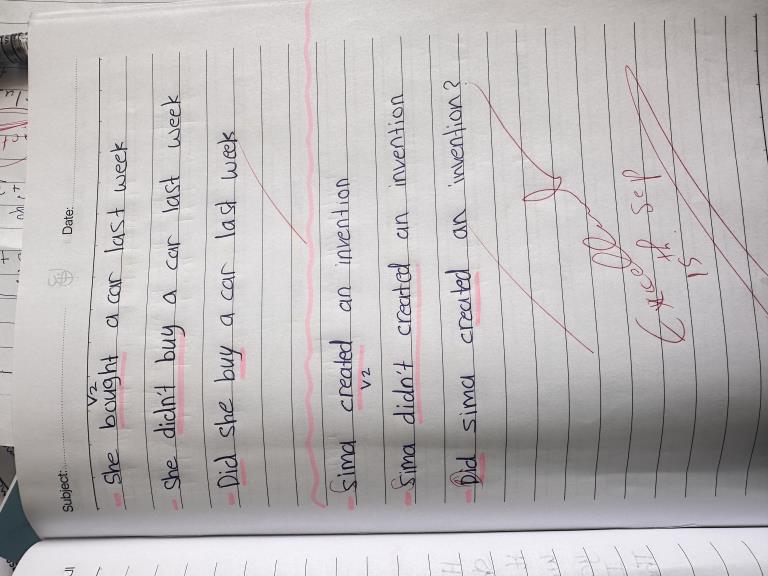 Subject: Date:
V2
- She bought a car last week
- She didn't buy a car last week
- Did she buy a car last week
- Sima created an invention
V2
- Sima didn't created an invention
- Did sima created an invention?
Excellent
15th Sep